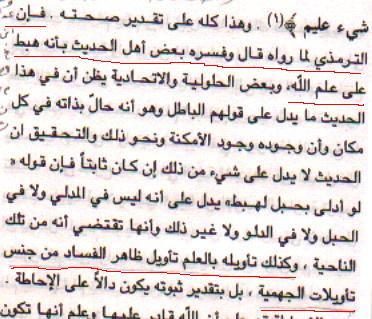 شيء عليم ﴾(١) . وهذا كله على تقدير صحته . فإن
الترمذي لما رواه قال وفسره بعض أهل الحديث بأنه هبط
على علم الله، وبعض الحلولية والاتحادية يظن أن في هذا
الحديث ما يدل على قولهم الباطل وهو أنه حالّ بذاته في كل
مكان وأن وجوده وجود الأمكنة ونحو ذلك والتحقيق ان
الحديث لا يدل على شيء من ذلك إن كان ثابتاً فإن قوله «
لو ادلى بحبل لهبط» يدل على أنه ليس في المدلي ولا في
الحبل ولا في الدلو ولا غير ذلك وأنها تقتضي أنه من تلك
الناحية ، وكذلك تأويله بالعلم تأويل ظاهر الفساد من جنس
تأويلات الجهمية ، بل بتقدير ثبوته يكون دالاً على الإحاطة .
أن الله قادر عليها وعلم أنها تكون